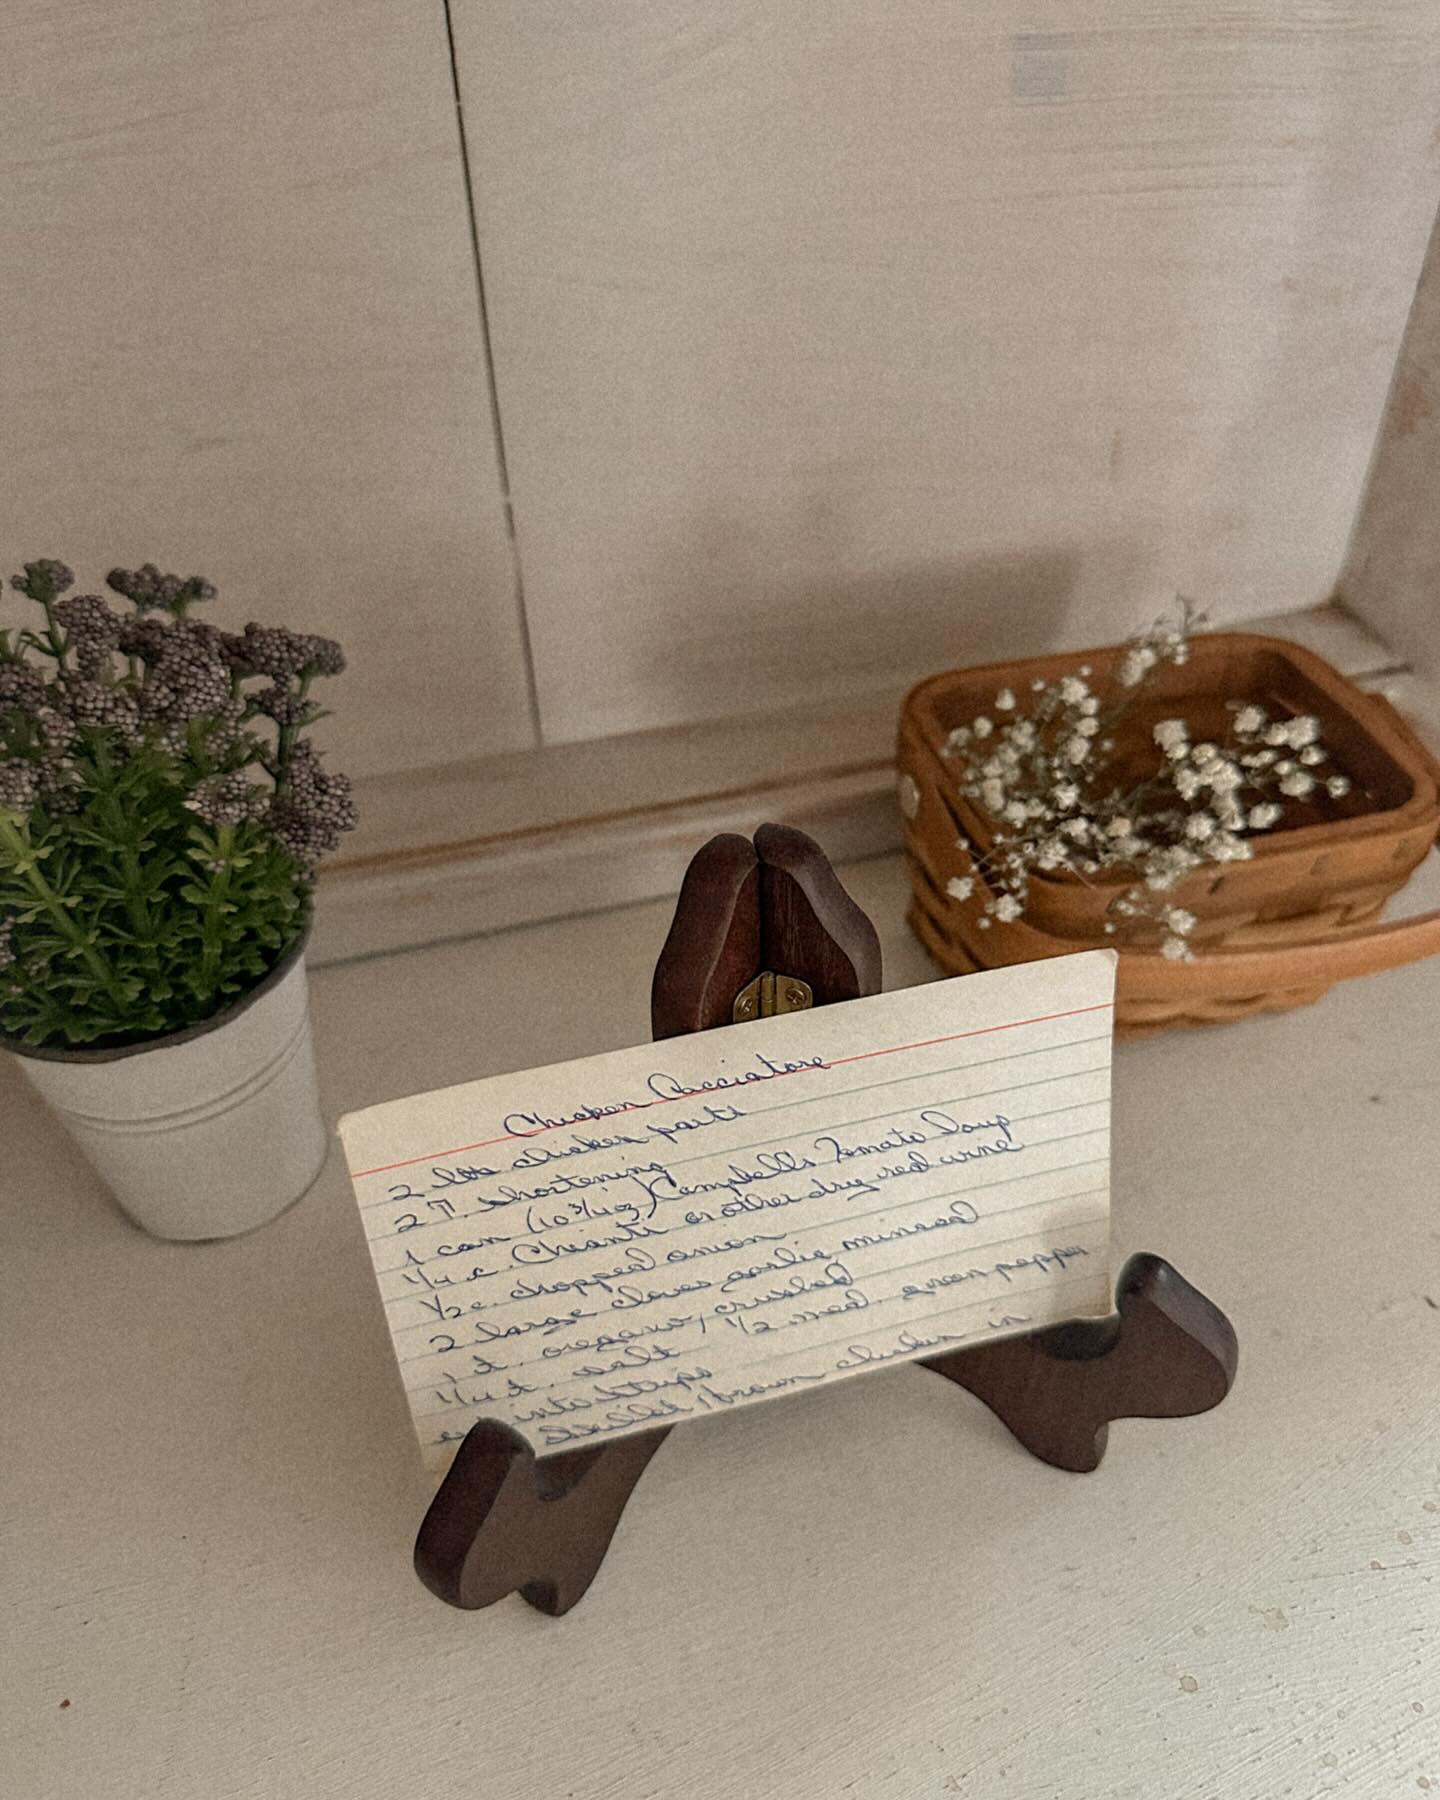 Chicken Cacciatore
2 lbs chicken parts
2 T. shortening
1 can (10 3/4 oz) Campbell's Tomato Soup
1/4 c. Chianti or other dry red wine
1/2 c. chopped onion
2 large cloves garlic minced
1 t. oregano, crushed
1/4 t. salt 1/2 med. green pepper
into strips
Skillet, brown chicken in